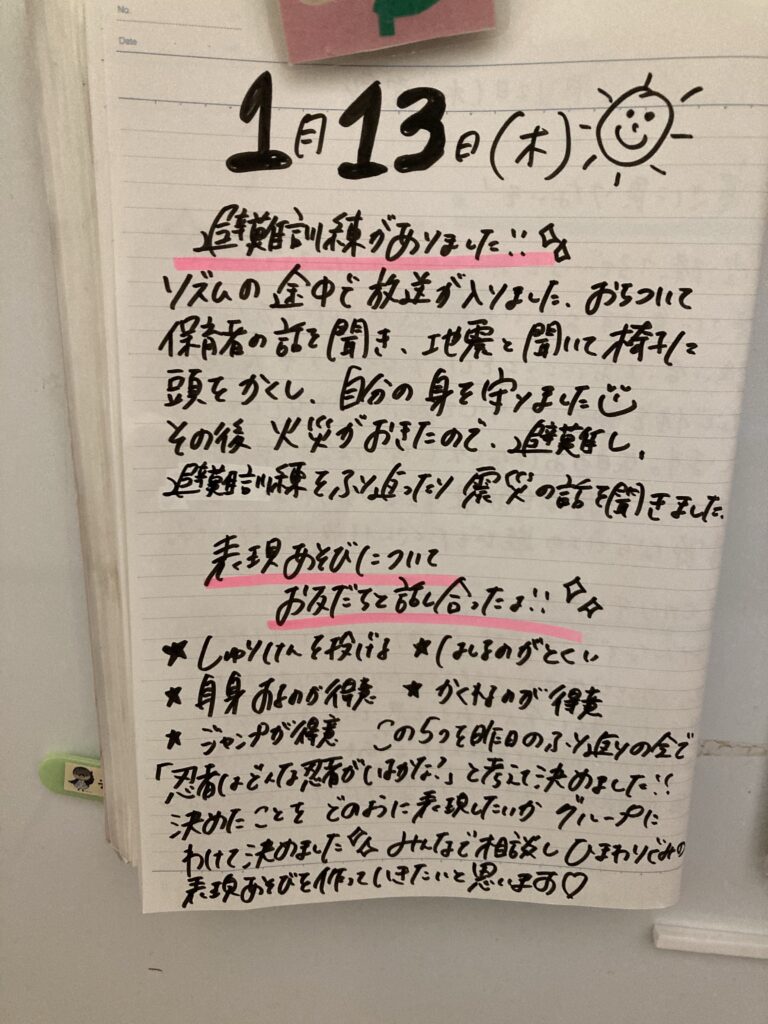 No.
Date
1月13日(木)
避難訓練がありました!!
リズムの途中で放送が入りました。おちついて
保育者の話を聞き、地震と聞いて椅子に
頭をかくし、自分の身を守りました
その後 火災がおきたので、避難し、
避難訓練をふり返ったり 震災の話を聞きました。
表現あそびについて
お友だちと話し合ったよ!!
★しゅりけんを投げる ★はしるのがとくい
★ 自身 のが得意 ★ かくれるのが 得意
★ ジャンプが得意 この5つを昨日のふり返りの全で
「忍者はどんな忍者がいるかな?」と考えて決めました!!
決めたことを どのように表現したいか グループに
わけて決めました みんなで相談し ひまわりぐみの
表現あそびを作っていきたいと思います♡